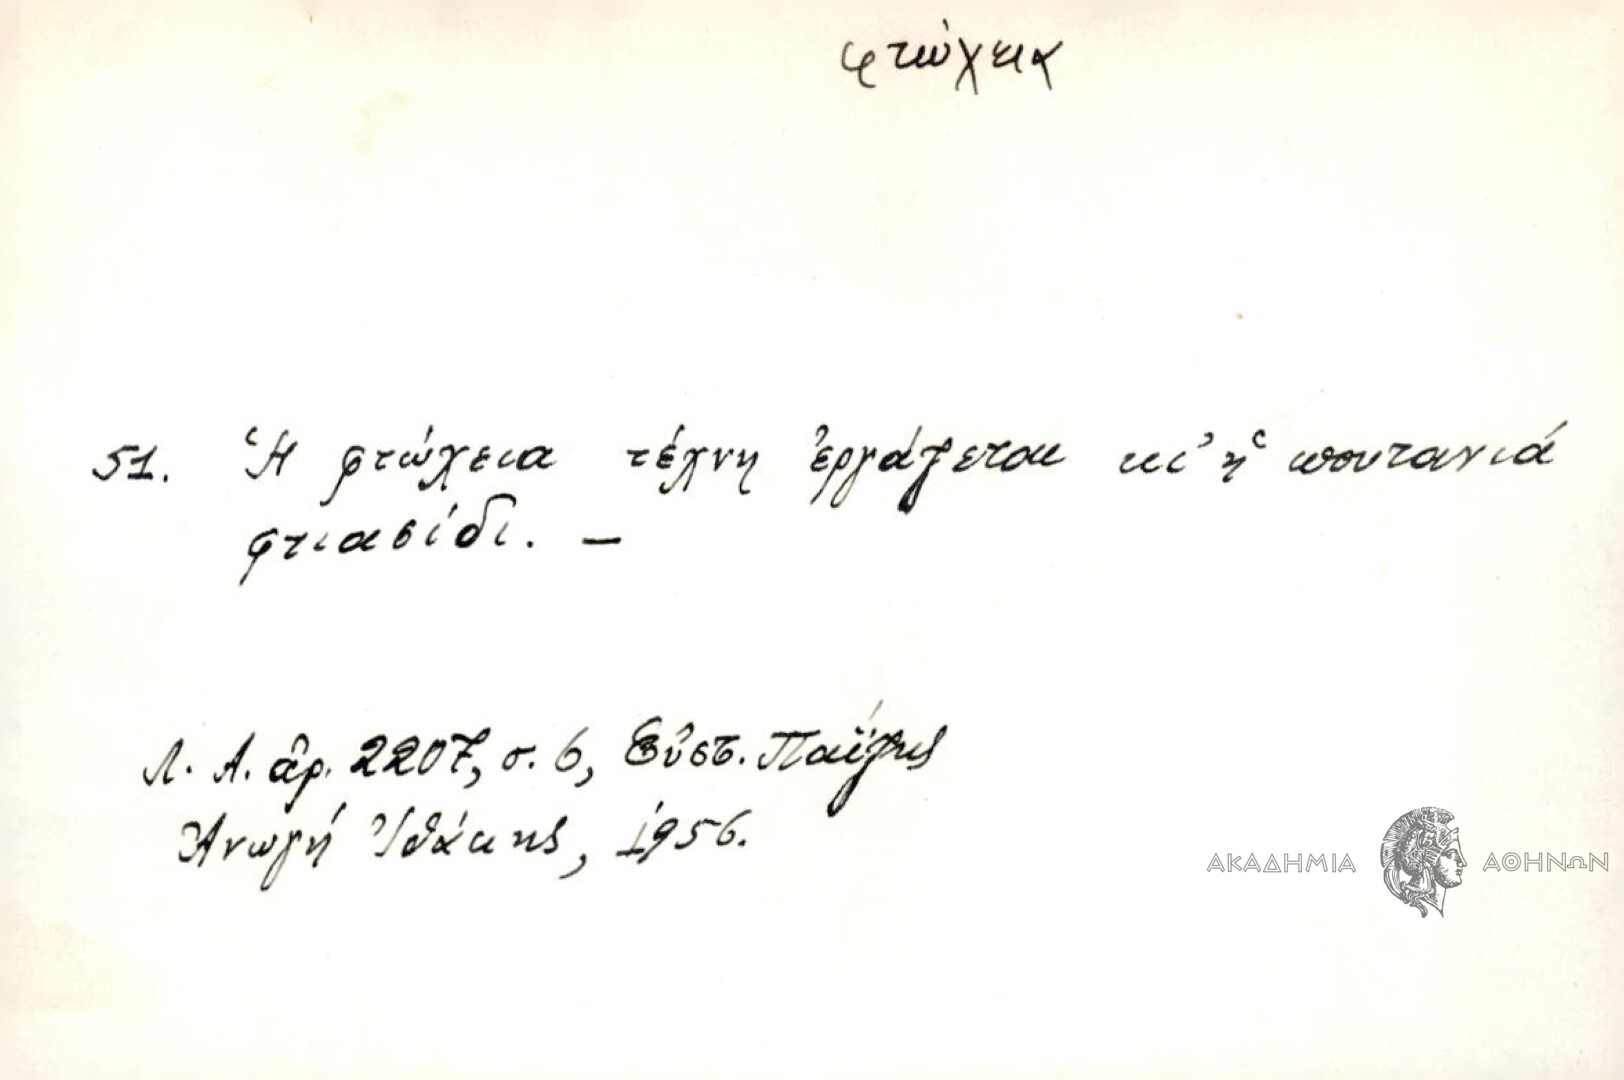 φτώχεια
51. Ἡ φτώχεια τέχνη ἐργάζεται κι' ἡ πουτανιά
φτιασίδι. —
Λ. Α. ἀρ. 2207, σ. 6, Εὐστ. Παΐζης
Ἀνωγή Ἰθάκης, 1956.
ΑΚΑΔΗΜΙΑ ΑΘΗΝΩΝ